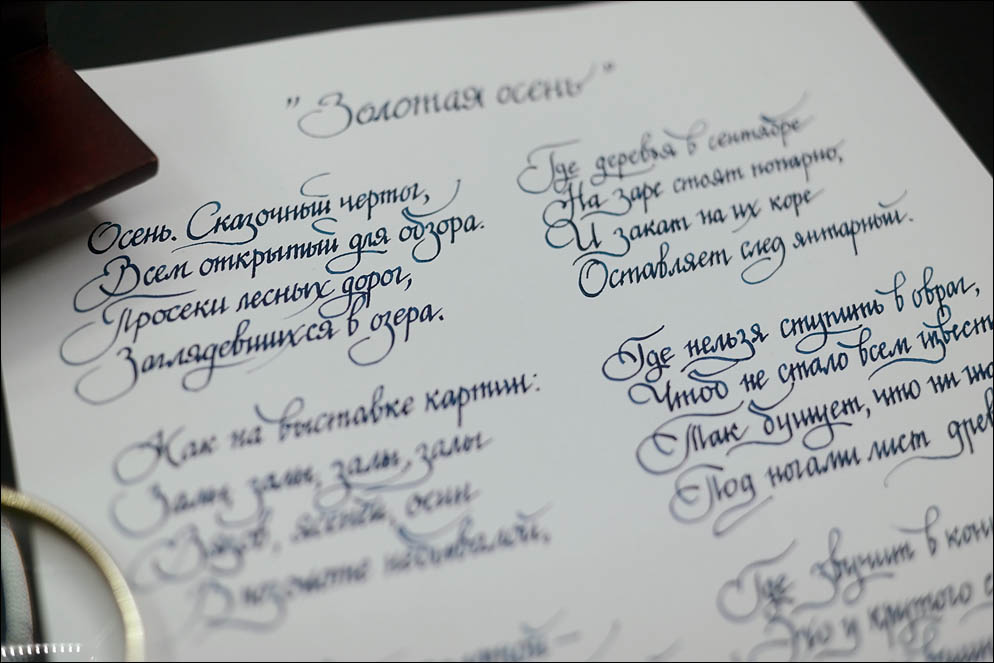 "Золотая осень"
Осень. Сказочный чертог,
Всем открытый для обзора.
Просеки лесных дорог,
Заглядевшихся в озера.
Как на выставке картин:
Залы, залы, залы, залы
Вязов, ясеней, осин
В позолоте небывалой.
Где деревья в сентябре
На заре стоят попарно,
И закат на их коре
Оставляет след янтарный.
Где нельзя ступить в овраг,
Чтоб не стало всем извест
Так бушует, что ни ша
Под ногами лист древ
Где звучит в кон
Эхо у крутого с